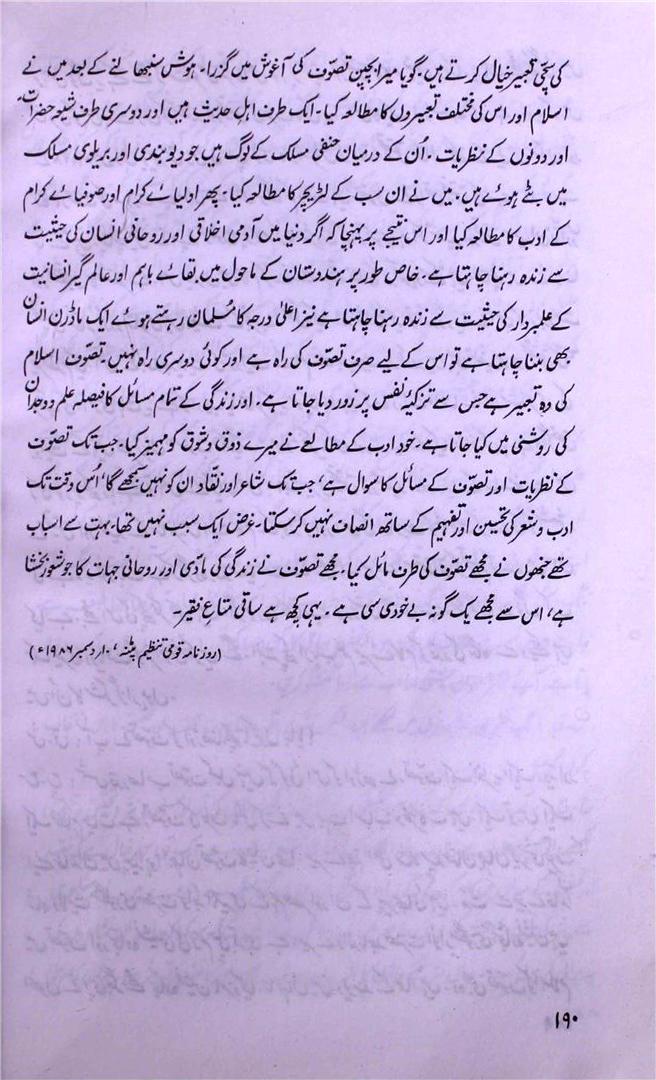 کی سچّی تعبیر خیال کرتے ہیں۔ گویا میرا بچپن تصوّف کی آغوش میں گزرا۔ ہوش سنبھالنے کے بعد میں نے
اسلام اور اس کی مختلف تعبیروں کا مطالعہ کیا۔ ایک طرف اہلِ حدیث ہیں اور دوسری طرف شیعہ حضرات
اور دونوں کے نظریات۔ اُن کے درمیان حنفی مسلک کے لوگ ہیں جو دیوبندی اور بریلوی مسلک
میں بٹے ہوئے ہیں۔ میں نے ان سب کے لٹریچر کا مطالعہ کیا۔ پھر اولیائے کرام اور صوفیائے کرام
کے ادب کا مطالعہ کیا اور اس نتیجے پر پہنچا کہ اگر دنیا میں آدمی اخلاقی اور روحانی انسان کی حیثیت
سے زندہ رہنا چاہتا ہے۔ خاص طور پر ہندوستان کے ماحول میں بقائے باہم اور عالم گیر انسانیت
کے علمبردار کی حیثیت سے زندہ رہنا چاہتا ہے نیز اعلیٰ درجہ کا مُسلمان رہتے ہوئے ایک ماڈرن انسان
بھی بننا چاہتا ہے تو اس کے لیے صرف تصوّف کی راہ ہے اور کوئی دوسری راہ نہیں۔ تصوّف اسلام
کی وہ تعبیر ہے جس سے تزکیۂ نفس پر زور دیا جاتا ہے۔ اور زندگی کے تمام مسائل کا فیصلہ علم و وجدان
کی روشنی میں کیا جاتا ہے۔ خود ادب کے مطالعے نے میرے ذوق و شوق کو مہمیز کیا۔ جب تک تصوّف
کے نظریات اور تصوّف کے مسائل کا سوال ہے، جب تک شاعر اور نقّاد ان کو نہیں سمجھے گا، اُس وقت تک
ادب و شعر کی تحسین اور تفہیم کے ساتھ انصاف نہیں کر سکتا۔ غرض ایک سبب نہیں تھا۔ بہت سے اسباب
تھے جنھوں نے مجھے تصوّف کی طرف مائل کیا۔ مجھے تصوّف نے زندگی کی مادّی اور روحانی جہات کا جو شعور بخشا
ہے، اس سے مجھے یک گونہ بے خودی سی ہے۔ یہی کچھ ہے ساقی متاعِ فقیر۔
(روزنامہ قومی تنظیم پٹنہ، ۱۰ر دسمبر ۱۹۸۶ء)
۱۹۰